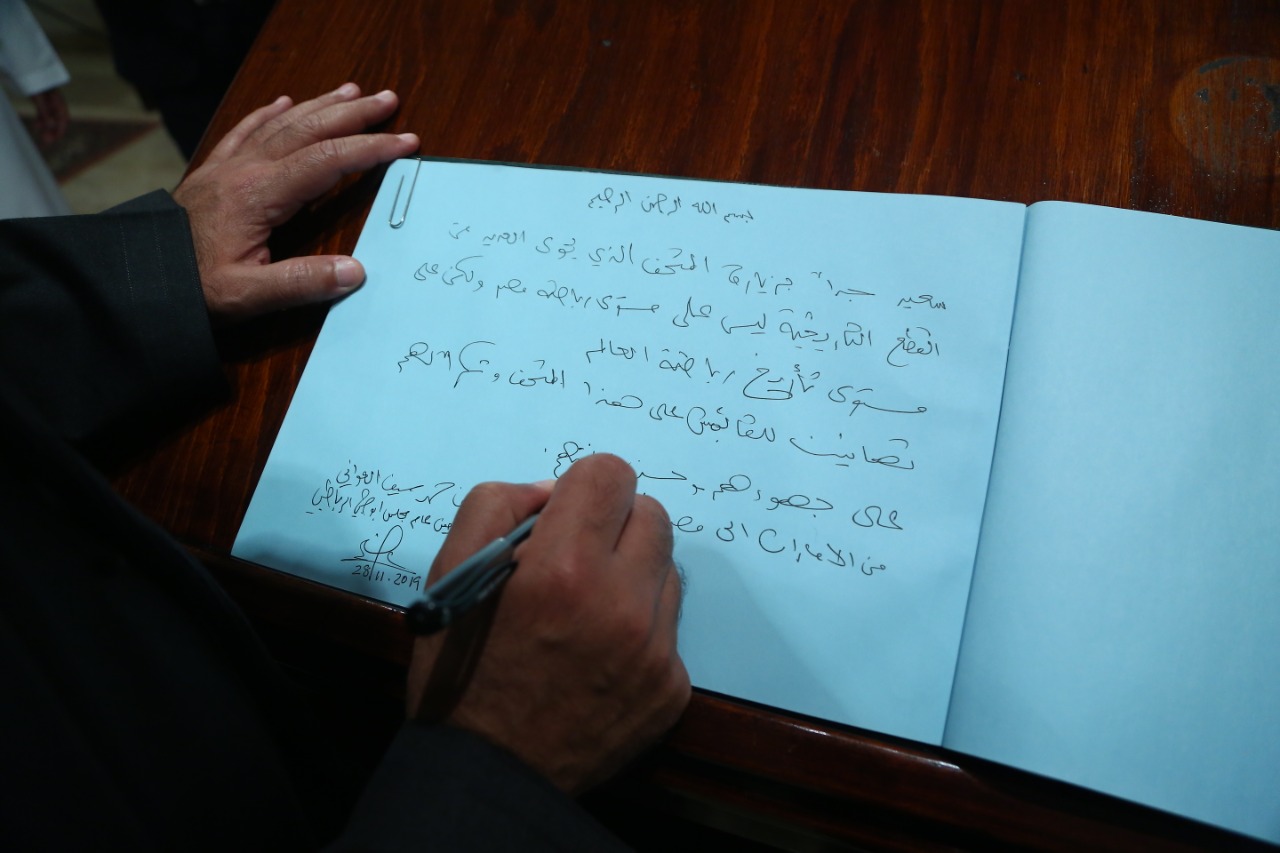 بسم الله الرحمن الرحيم
سعيد جداً بزيارة المتحف الذي يحوى العديد من
القطع التاريخية ليس على مستوى رياضة مصر ولكن على
مستوى تأريخ رياضة العالم
تهانينا للقائمين على هذا المتحف ونشكرهم
على جهودهم وحسن
من الامارات الى مصر
محمد سيف العواني
عام مجلس ابوظبي الرياضي
28/11.2019